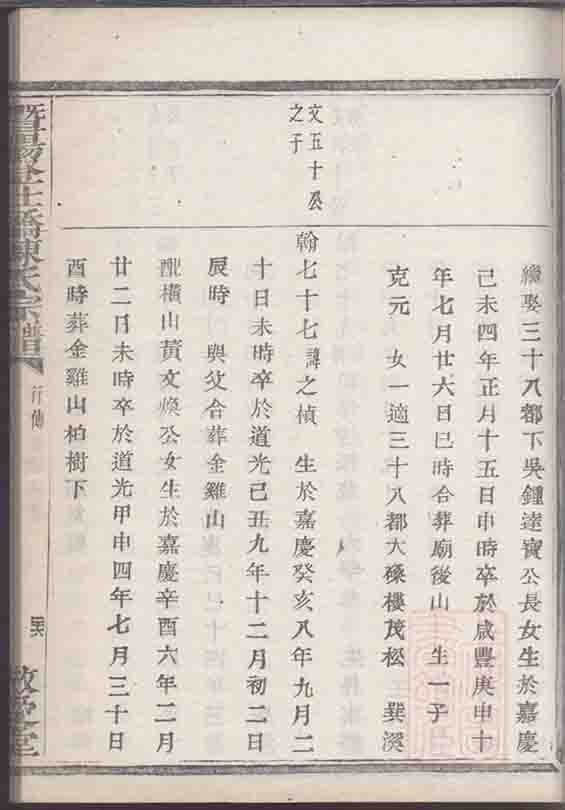 繼娶三十八都下吳鍾達寶公長女生於嘉慶
己未四年正月十五日申時卒於咸豐庚申十
年七月廿六日巳時合葬廟後山　生一子
克元　女一適三十八都大　樓茂松　巽溪
文五十公
之子
翰七十七諱之楨　生於嘉慶癸亥八年九月二
十日未時卒於道光己丑九年十二月初二日
辰時　與父合葬金雞山
配橫山黃文煥公女生於嘉慶辛酉六年二月
廿二日未時卒於道光甲申四年七月三十日
酉時葬金雞山柏樹下
暨陽 陳氏宗譜
行傳
敬愛堂